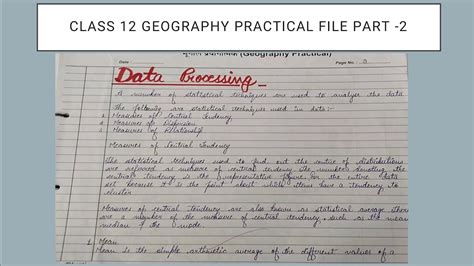 CLASS 12 GEOGRAPHY PRACTICAL FILE PART -2
(Geography Practical)
Date
Page No. 3
Data Processing
A number of statistical techniques are used to analyse the data
The following are statistical techniques used in data:-
Measures of Central Tendency
Measures of Dispersion
Measures of Relationship
Measures of Central Tendency
The statistical techniques used to find out the centre of distributions
are referred as measure of central tendency. The number denoting the
central tendency is the representative figure for the entire data
set because it is the point about which items have a tendency to
cluster.
Measures of central tendency are also known as statistical average there
are a number of the measure of central tendency, such as the mean
median & the mode.
1 Mean
Mean is the simple arithmetic average of the different values of a